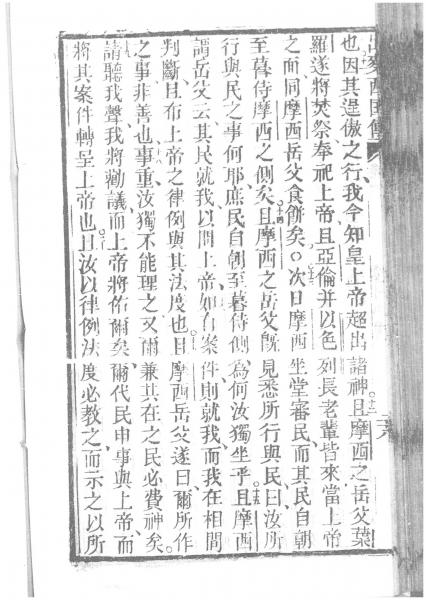 也因其逞傲之行、我今知皇上帝超出諸神。且摩西之岳父葉
羅遂將焚祭奉祀上帝、且亞倫并以色列長老輩皆來、當上帝
之面、同摩西岳父食餅矣。○次日摩西坐堂審民、而其民自朝
至暮待摩西之側矣。且摩西之岳父既見悉所行與民曰、汝所
行與民之事何耶、庶民自朝至暮待側、為何汝獨坐乎。且摩西
謂岳父云、其民就我以問上帝、如有案件則就我、而我在相間
判斷、且布上帝之律例與其法度也。且摩西岳父遂曰、爾所作
之事非善也、事重汝獨不能理之、又爾兼其在之民必費神矣。
請聽我聲、我將勸議、而上帝將佑爾矣、爾代民申事與上帝、而
將其案件轉呈上帝也。且汝以律例法度必教之、而示之以所